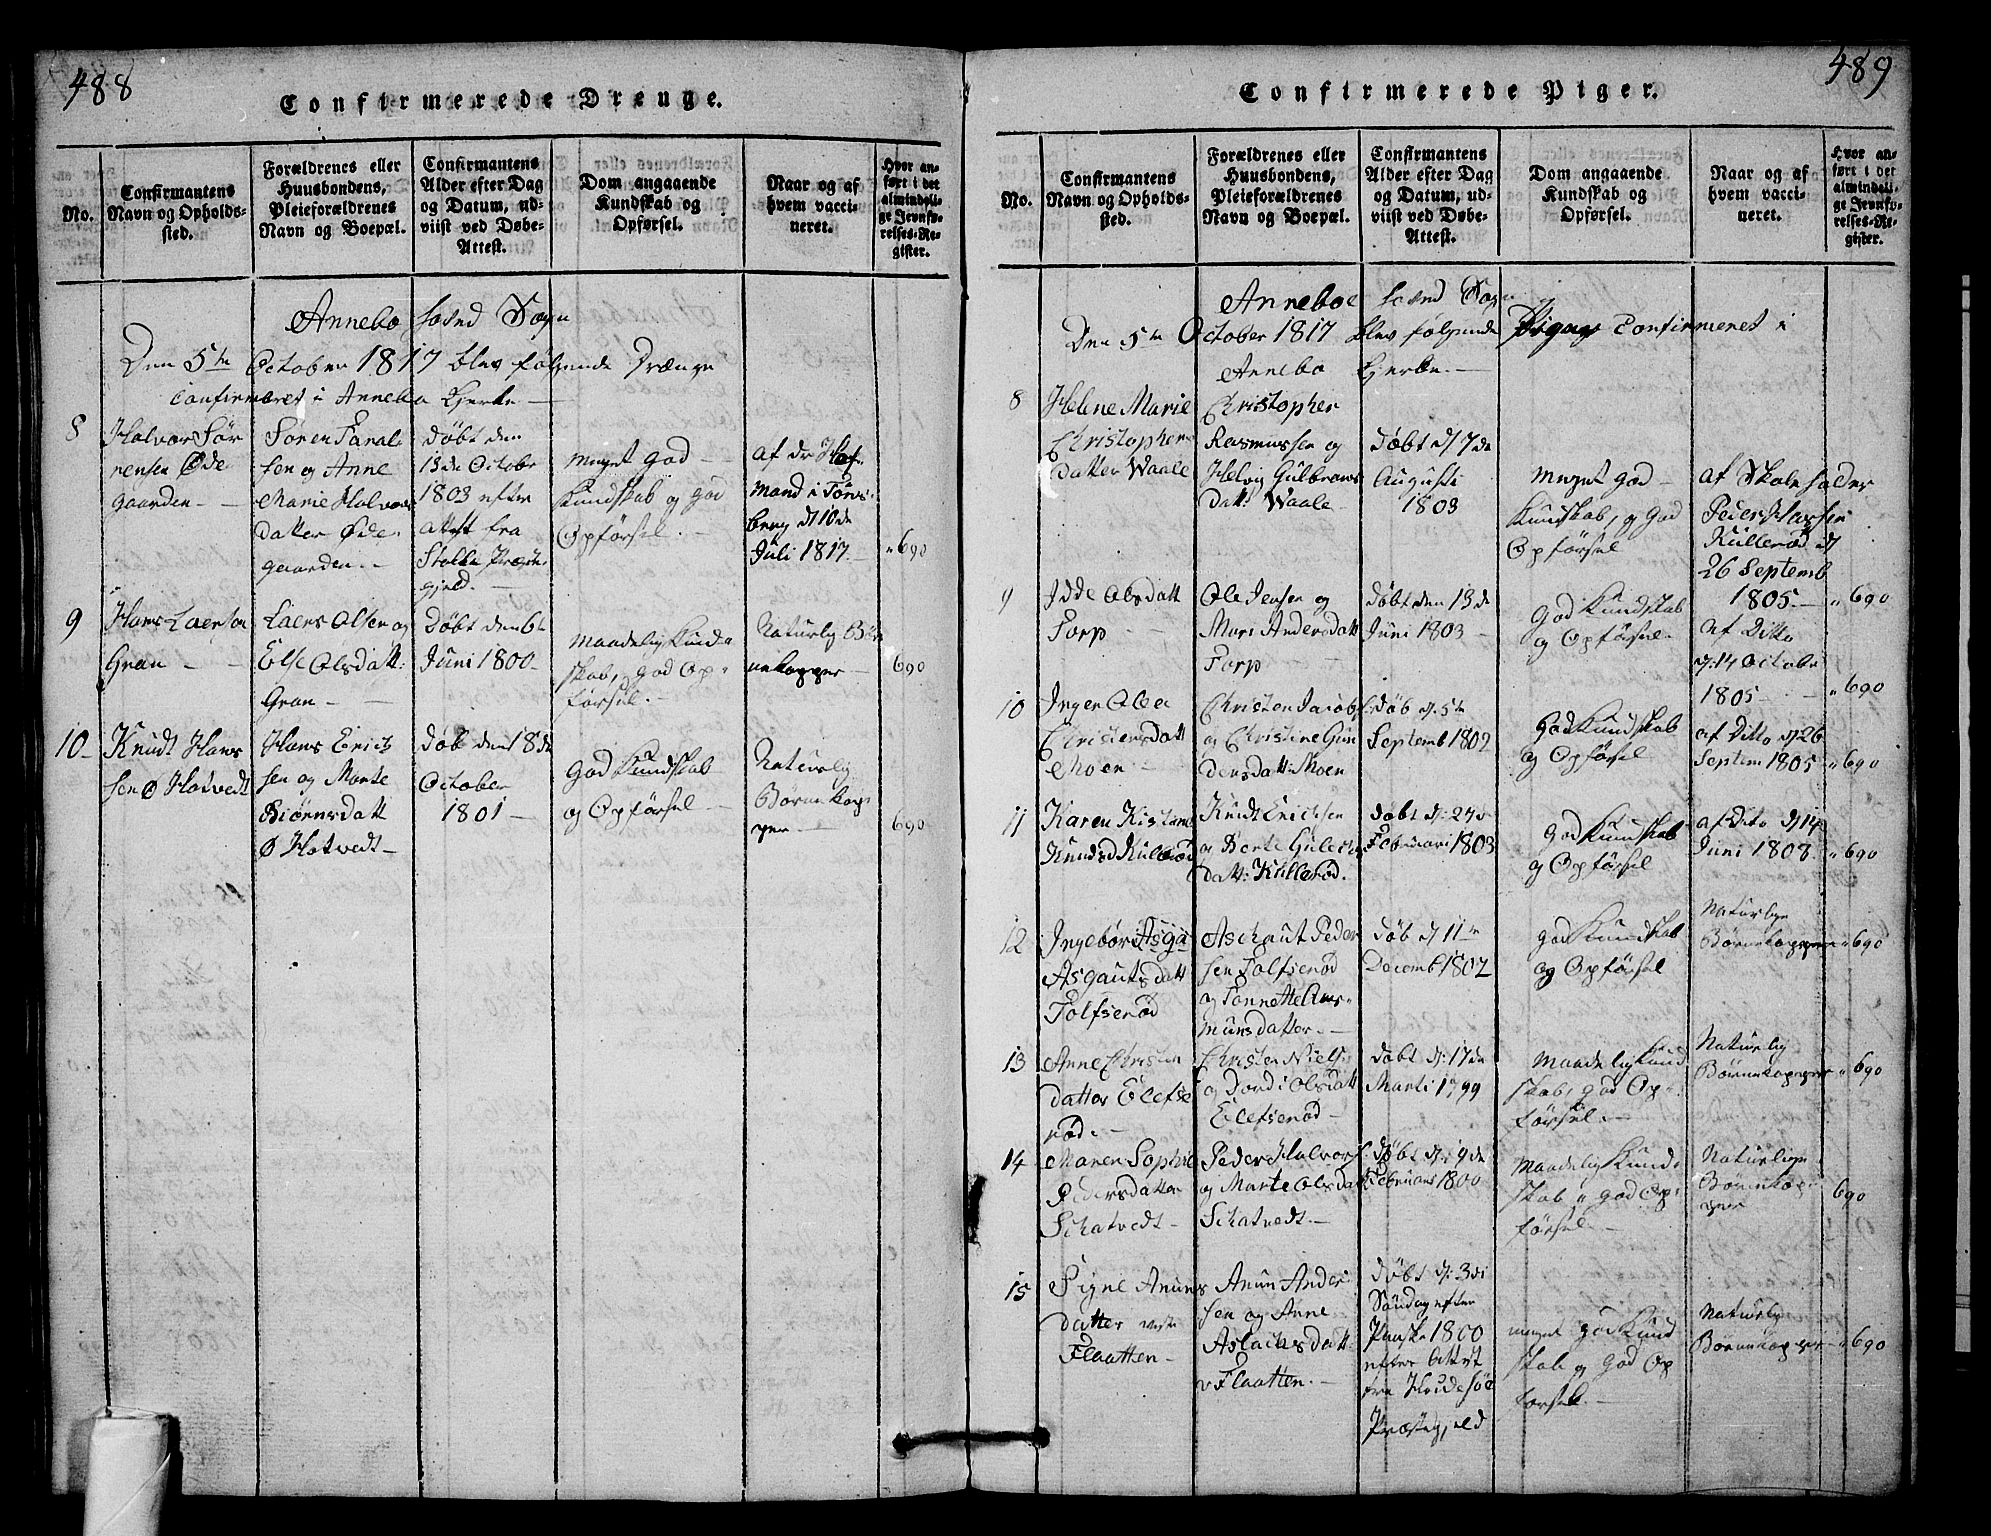 488
Confirmerede Drenge.
No.
Confirmantens
Navn og Opholds-
sted.
Forældrenes eller
Huusbondens,
Pleieforældrenes
Navn og Boepæl.
Confirmantens
Alder efter Dag
og Datum, ud-
viist ved Døbe-
Attest.
Dom angaaende
Kundskab og
Opførsel.
Naar og af
hvem vacci-
neret.
Hvor an-
ført i det
almindeli-
ge Jevnfø-
relses-Re-
gister.
Annebo Hovd Sogn
Den 5te October 1817 blev følgende Drænge
Confirmeret i Annebo Kjerke
8
Halvor Sør
rensen Øde
gaarden
Søren Paral
sen og Anne
Marie Halvors
datter Øde
gaarden
Døbt den
13de October
1803 efter
attest fra
Stokke Præste
gjeld.
meget god
Kundskab og god
Opførsel.
af dr Hof
mand i Tøns
berg d 10de
Juli 1817.
690
9
Hans Laersen
Gran
Laers Olsen og
Else Olsdatt:
Gran
Døbt den 6te
Juni 1800
maadelig Kund
skab, god Op
førsel.
Naturlig Bør
nekopper
690
10
Knudt Hans
sen Ø Hotvedt
Hans Erich
sen og Marte
Biørnsdatt
Ø Hotvedt
døb den 18de
October
1801
god Kundskab
og Opførsel
Naturlig
Børnekop
per
690
489
Confirmerede Piger.
No.
Confirmantens
Navn og Opholds-
sted.
Forældrenes eller
Huusbondens,
Pleieforældrenes
Navn og Boepæl.
Confirmantens
Alder efter Dag
og Datum, ud-
viist ved Døbe-
Attest.
Dom angaaende
Kundskab og
Opførsel.
Naar og af
hvem vacci-
neret.
Hvor an-
ført i det
almindeli-
ge Jevnfø-
relses-Re-
gister.
Anneboe Hovd Sogn
Den 5te October 1817 blev følgende Piger Confirmeret i
Annebo Kjerke.
8
Helene Marie
Christopher
datter Waale
Christopher
Rasmussen og
Helvig Gulbrans
datt: Waale
Døbt d 7de
Augusti
1803
meget god
Kundskab, og God
Opførsel
af Skoleholder
Peder Hansen
Kullerød d
26 Septemb
1805.
690
9
Idde Olsdatt
Torp
Ole Jensen og
Mari Andersdatt
Torp
døbt den 13de
Juni 1803
god Kundskab
og Opførsel.
af Ditto
d: 14 Octobr
1805
690
10
Inger Olea
Christensdatt
Moen
Christen Jacobs
og Christine Gun
dersdatt: Moen
døb d. 5te
Septemb 1802
God Kundskab
og Opførsel
af Ditto d 26
Septem 1805
690
11
Karen Kistine
Knudsd Kullerød
Knudt Erichsen
og Berte Gulichs
datt: Kullerød.
døbt d: 27de
Februari 1803
god Kundskab
og Opførsel
af Dito d 14
Juni 1808
690
12
Ingebør Asga
Asgautsdatt
Tolfserød
Aschaut Peder
sen Tolfserød
og Tonnette Ras
musdatter
døb d 11te
Decemb 1802
god Kundskab
og Opførsel
Naturlige
Børnekopper
690
13
Anne Christen
datter Elefse
rød
Christen Niels
og Dordi Olsdatt
Elefserød
døbt d: 17de
Marti 1799
maadelig Kund
skab, god Op
førsel.
Naturlig
Børnekopper
690
14
Maren Sophie
Pedersdatter
Schatvedt
Peder Halvors
og Marte Olsdatt
Schatvedt.
Døbt d: 9de
Februari 1800
maadelig Kund
skab god Op
førsel.
Naturlige
Børnekop
per
690
15
Signe Anuns
datter vestre
Flaatten
Anun Ander
sen og Anne
Aslachsdatt
v Flaatten.
døbt d: 3die
Søndag efter
Paaske 1800
efter Attest
fra Hvidesøe
Præstegjeld
meget god Kund
skab og God Op
førsel.
Naturlig
Børnekopper
690